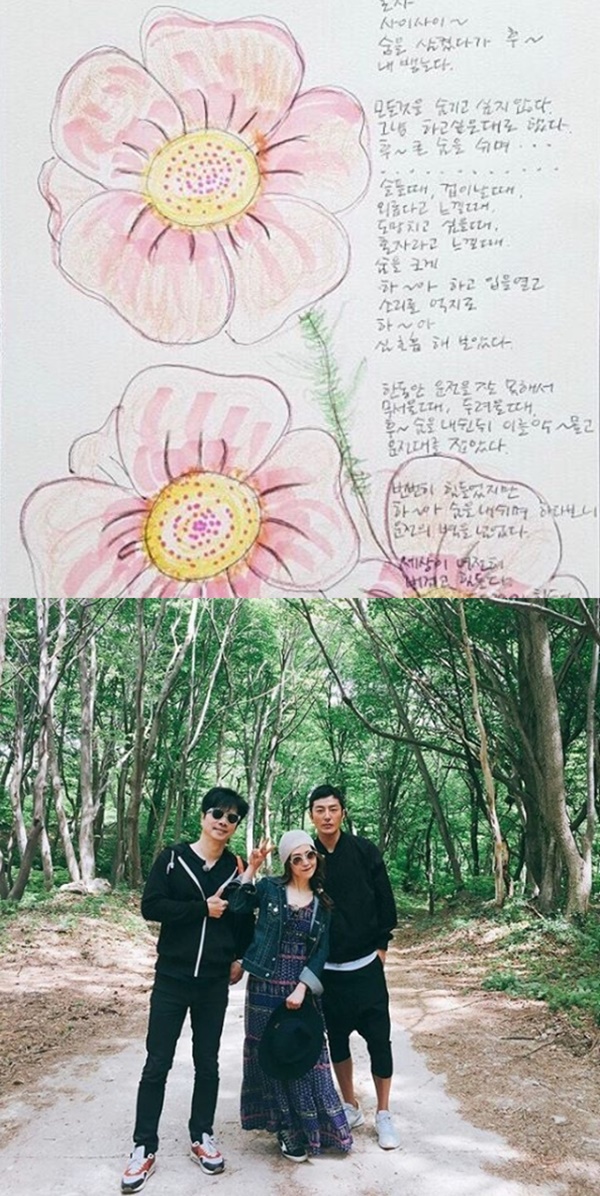 사이사이~
숨을 삼켰다가 후~
내뱉는다.
모든것을 숨기고 싶지 않다.
그냥 하고싶은대로 한다.
후~ 큰 숨을 쉬며 ...
슬플때, 겁이날때,
외롭다고 느낄때,
도망치고 싶을때,
혼자라고 느낄때.
숨을 크게
하~아 하고 입을열고
소리를 억지로
하~아
심호흡 해 보았다.
한동안 운전을 잘 못해서
무서울때, 두려울때,
후~ 숨을 내쉰뒤 이를 악~물고
운전대를 잡았다.
번번히 힘들었지만
하~아 숨을 내쉬며 하다보니
운전의 벽을 넘었다.
세상이
버겁고 힘들다.